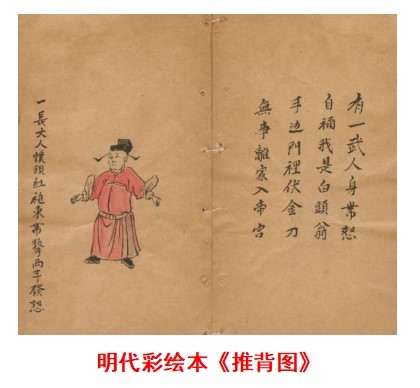 有一武人身帶怒
自補我是白頭翁
手边門裡伏金刀
無事離家入帝宮
一長大人幞頭紅袍束帶擎兩手發怒
明代彩绘本《推背图》